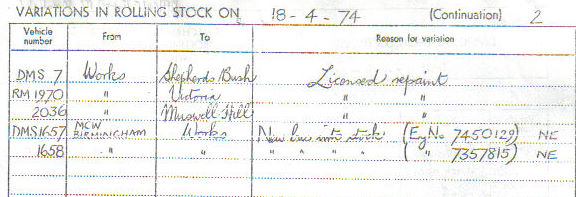 VARIATIONS IN ROLLING STOCK ON 18-4-74 (Continuation) 2
Vehicle number From To Reason for variation
DMS 7 Works Shepherds Bush Licensed repaint
RM 1970 " Victoria " "
2036 " Muswell Hill " "
DMS1657 MCW BIRMINGHAM Works New bus into stock (Eng No 7450129) NE
1658 " " " " " " ( " 7357815) NE